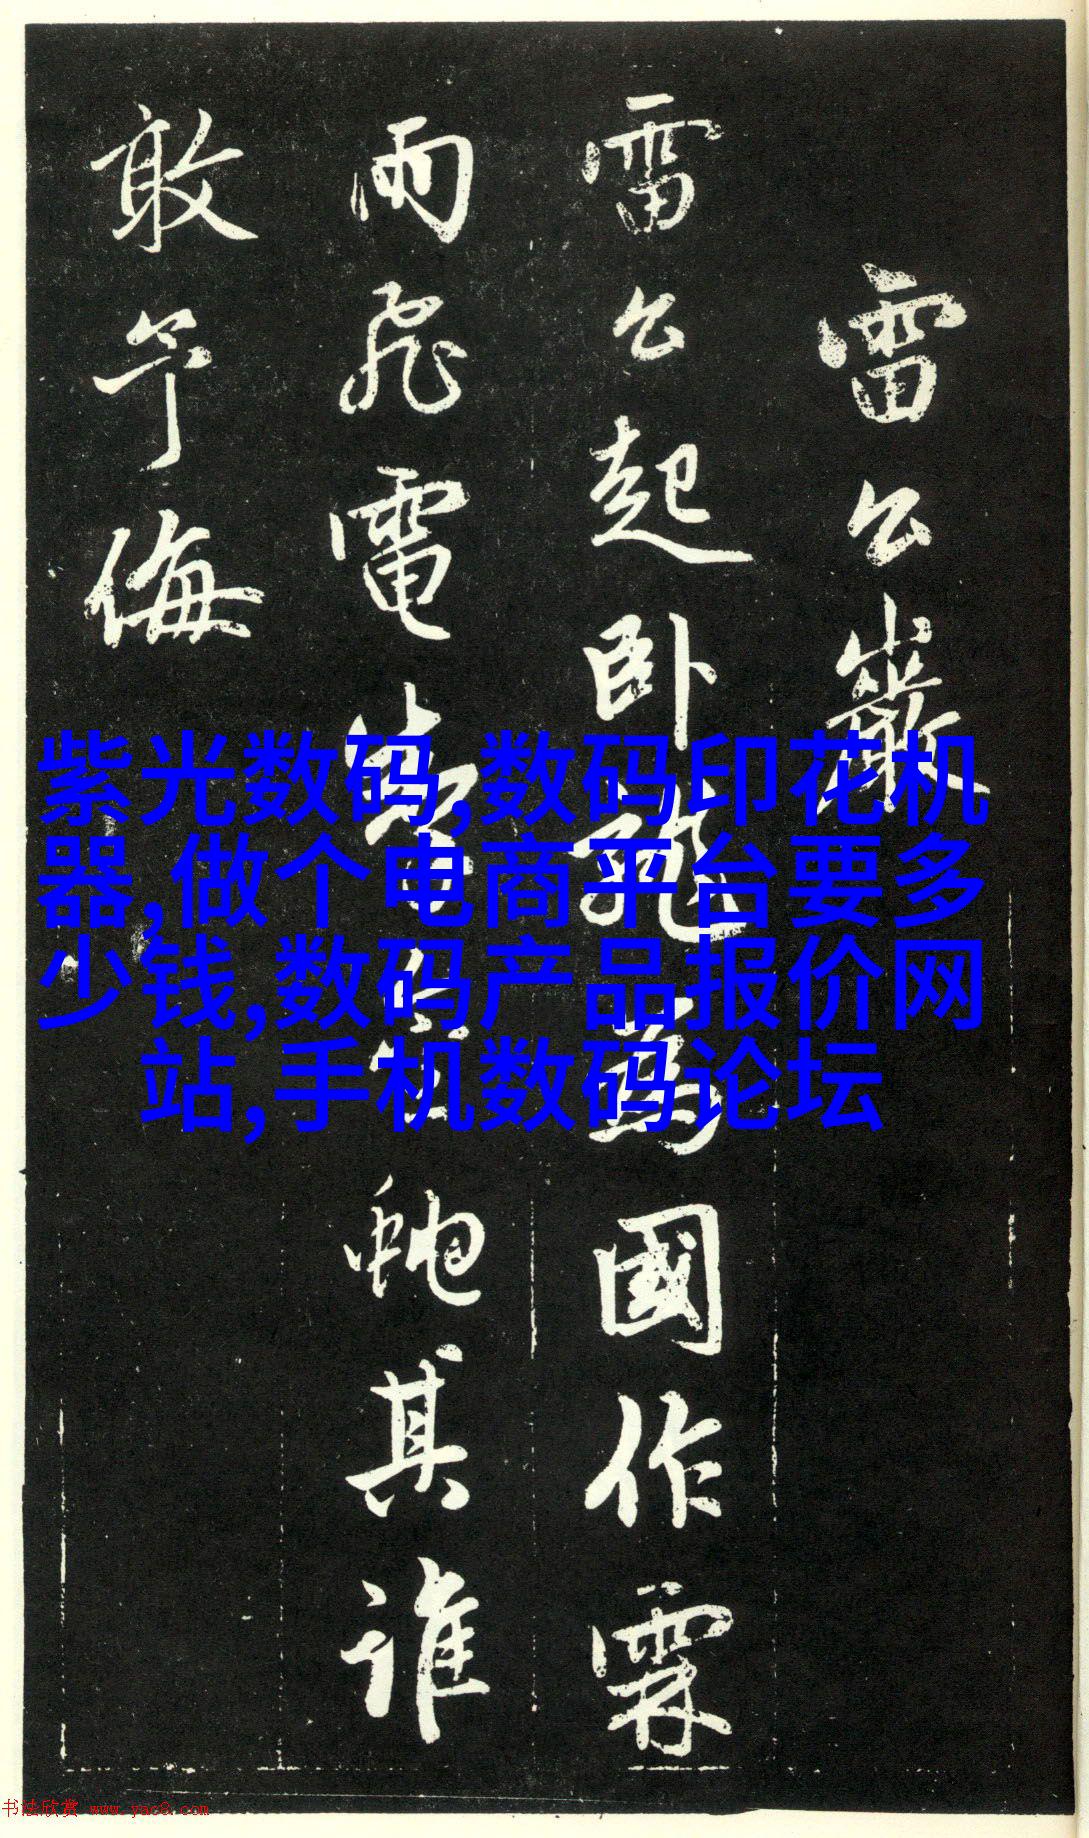 雷公巖
雷公起卧龍為國作霖
雨飛電虵其誰
敢予侮
紫光数码,数码印花机
器,做个电商平台要多
少钱,数码产品报价网
站,手机数码论坛
书法欣赏 www.yac8.com